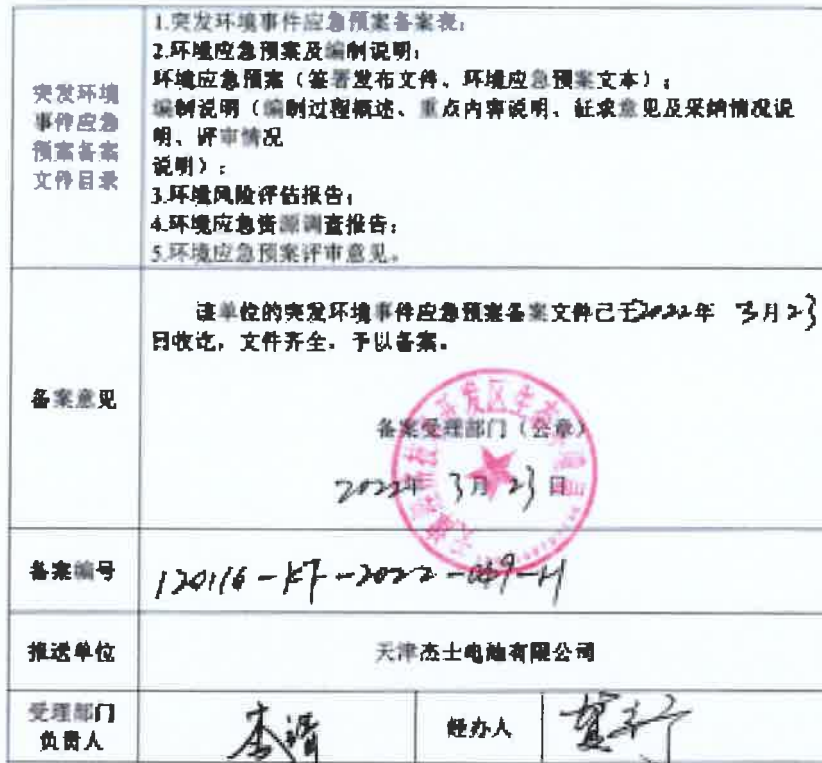 突发环境
事件应急
预案备案
文件目录
1.突发环境事件应急预案备案表;
2.环境应急预案及编制说明;
环境应急预案(签署发布文件、环境应急预案文本);
编制说明(编制过程概述、重点内容说明、征求意见及采纳情况说
明、评审情况
说明);
3.环境风险评估报告;
4.环境应急资源调查报告;
5.环境应急预案评审意见。
备案意见
该单位的突发环境事件应急预案备案文件已于2022年 3月23
日收讫,文件齐全,予以备案。
备案受理部门(公章)
2022年 3月 23日
备案编号
120116-KF-2022-049-H
报送单位
天津杰士电池有限公司
受理部门
负责人
李清
经办人